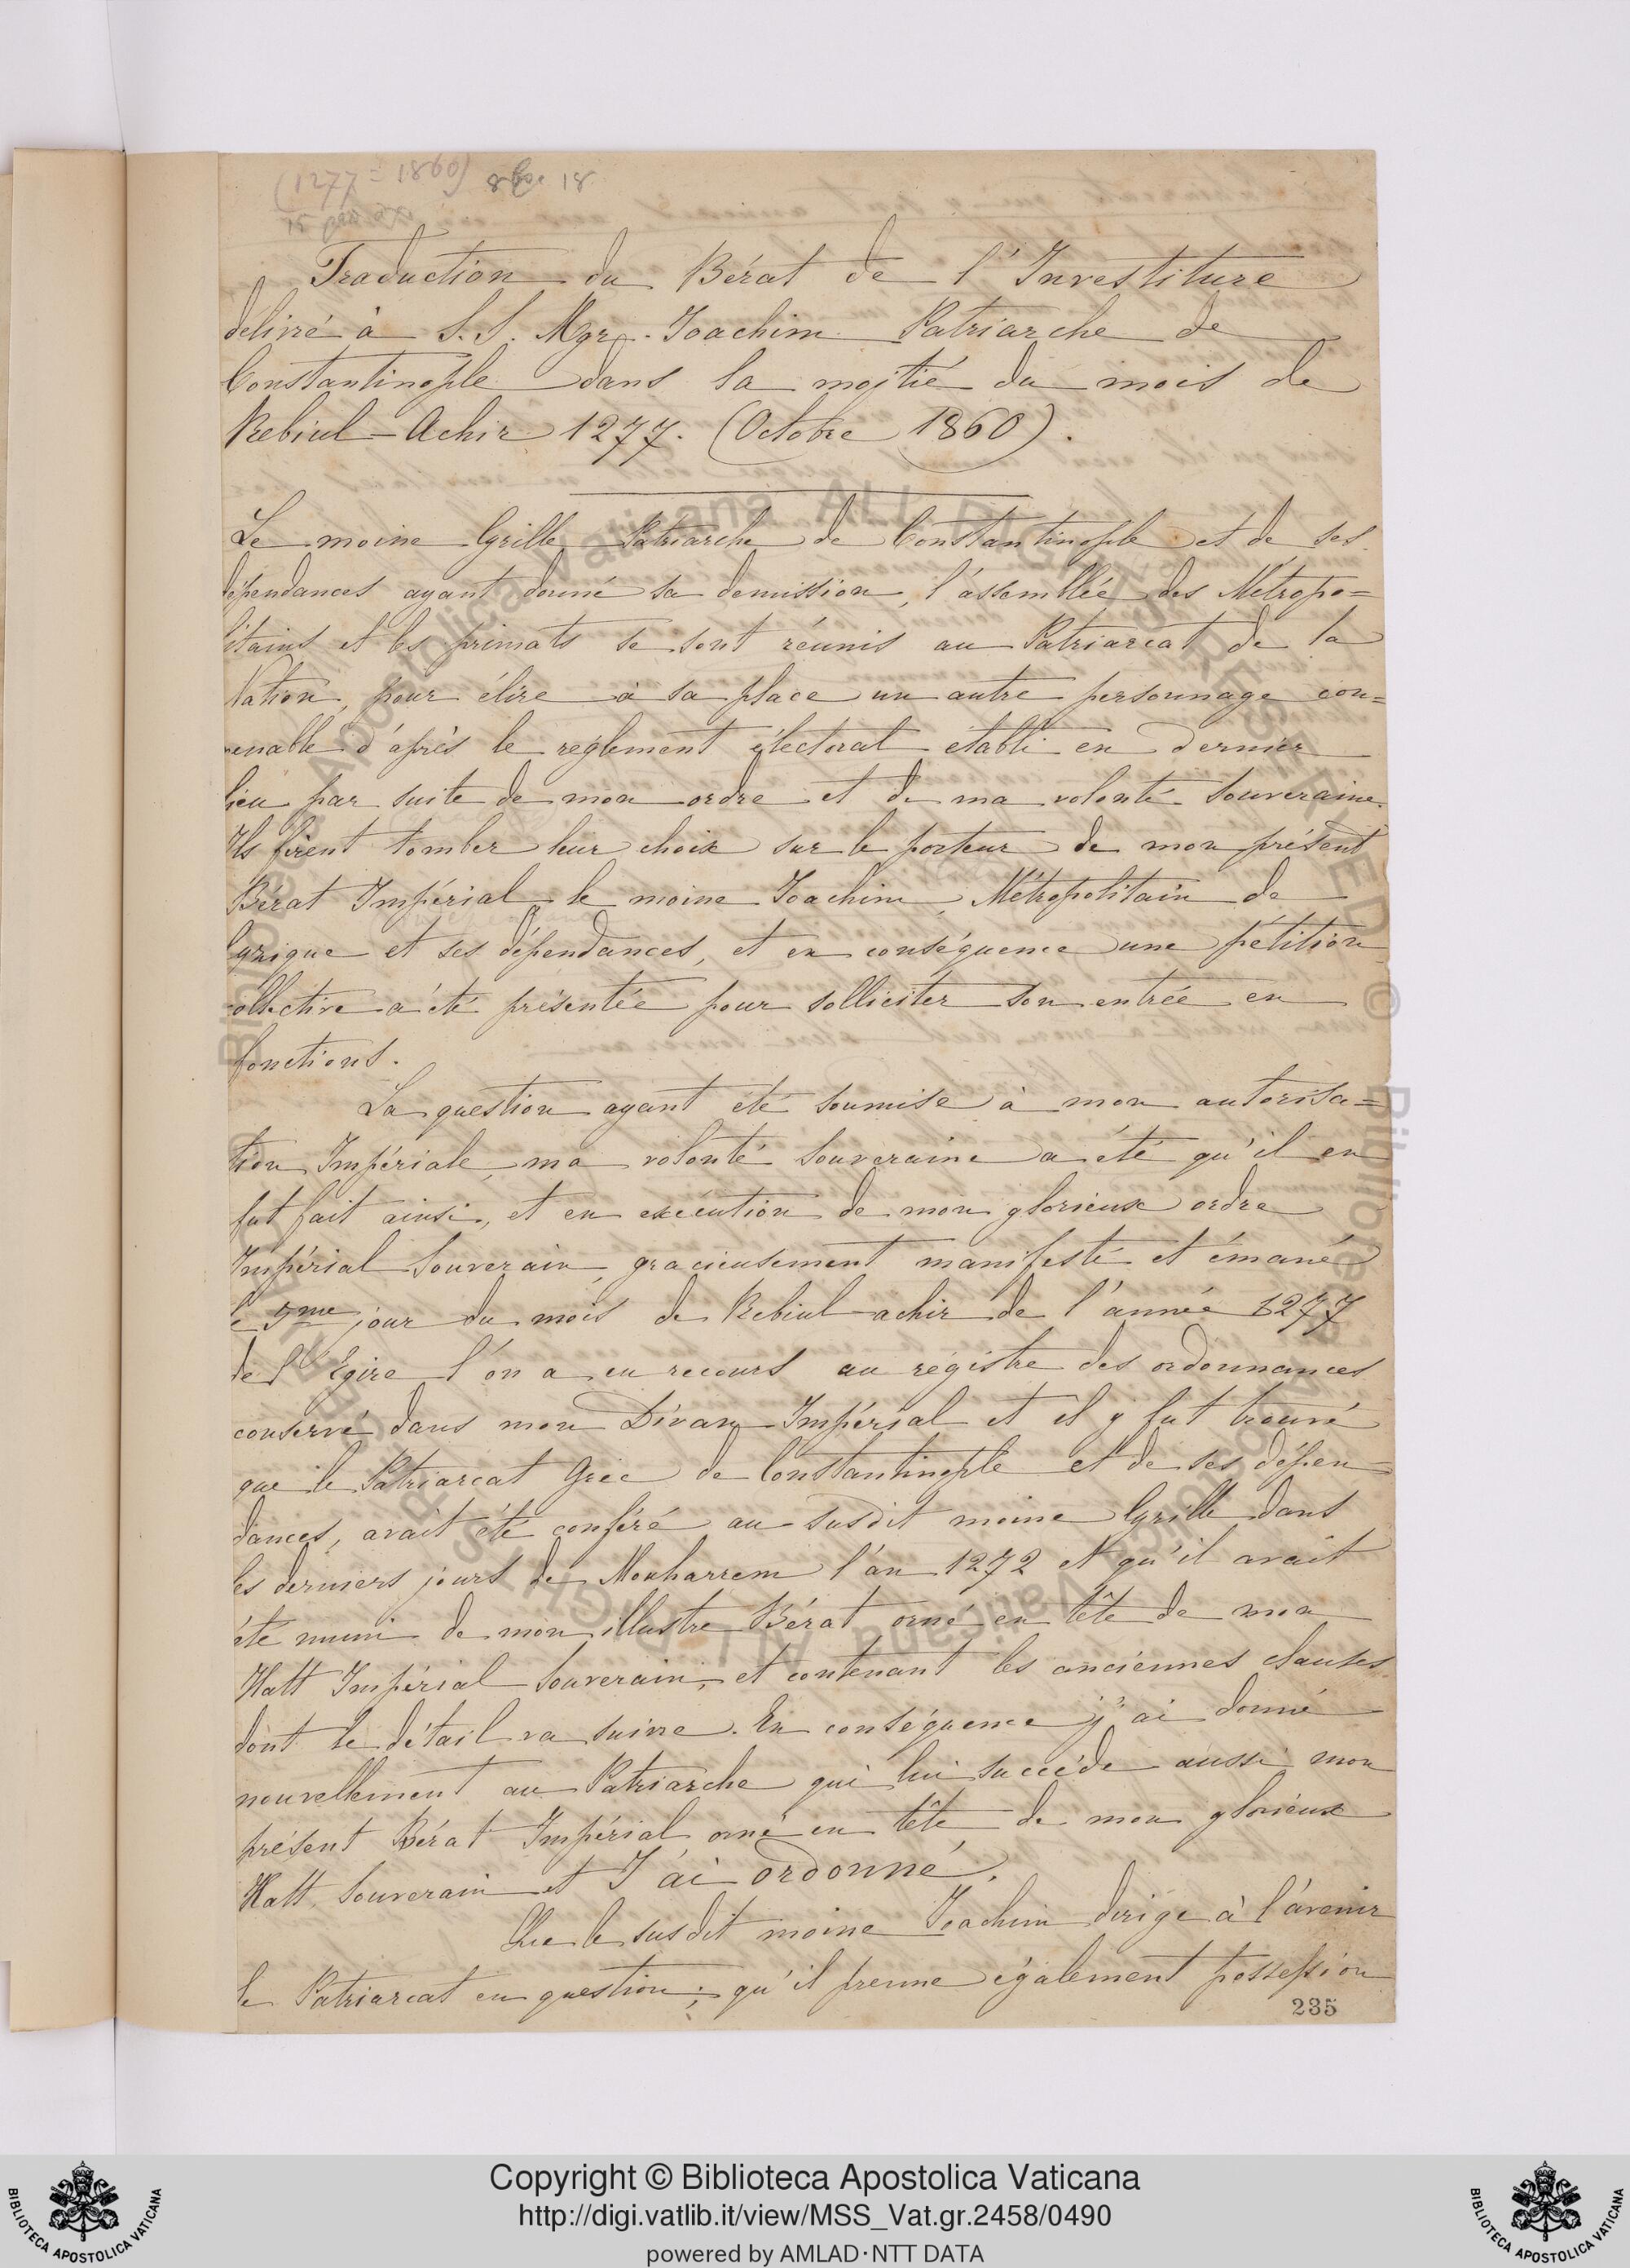 (1277 = 1860) 18
Traduction du Bérat de l'Investiture
délivré à S. S. Mgr. Joachim Patriarche de
Constantinople dans la moitié du mois de
Rebiul-Achir 1277. (Octobre 1860).
Le moine Cyrille Patriarche de Constantinople et de ses
dépendances ayant donné sa demission, l'assemblée des Métropo=
litains et les primats se sont réunis au Patriarcat de la
Nation, pour élire à sa place un autre personnage con=
venable d'après le réglement électoral établi en dernier
lieu par suite de mon ordre et de ma volonté Souveraine.
Ils firent tomber leur choix sur le porteur de mon présent
Bérat Impérial le moine Joachim, Métropolitain de
Cyzique et ses dépendances, et en conséquence une pétition
collective a été présentée pour solliciter son entrée en
fonctions.
La question ayant été soumise à mon autorisa=
tion Impériale, ma volonté Souveraine a été qu'il en
fut fait ainsi, et en exécution de mon glorieux ordre
Impérial Souverain, gracieusement manifesté et émané
le 5me jour du mois de Rebiul-achir de l'année 1277
de l'Egire l'on a eu recours au régistre des ordonnances
conservé dans mon Divan Impérial et il y fut trouvé
que le Patriarcat Grec de Constantinople et de ses dépen=
dances, avait été conféré au susdit moine Cyrille dans
les derniers jours de Mouharrem l'an 1272 et qu'il avait
été muni de mon illustre Bérat orné en tête de mon
Hatt Impérial Souverain, et contenant les anciennes clauses
dont le détail va suivre. En conséquence j'ai donné
nouvellement au Patriarche qui lui succéde aussi mon
présent Bérat Impérial orné en tête de mon glorieux
Hatt Souverain et J'ai ordonné.
Que le susdit moine Joachim dirige à l'avenir
le Patriarcat en question; qu'il prenne également possession
235
Copyright © Biblioteca Apostolica Vaticana
http://digi.vatlib.it/view/MSS_Vat.gr.2458/0490
powered by AMLAD·NTT DATA
BIBLIOTECA APOSTOLICA VATICANA
BIBLIOTECA APOSTOLICA VATICANA